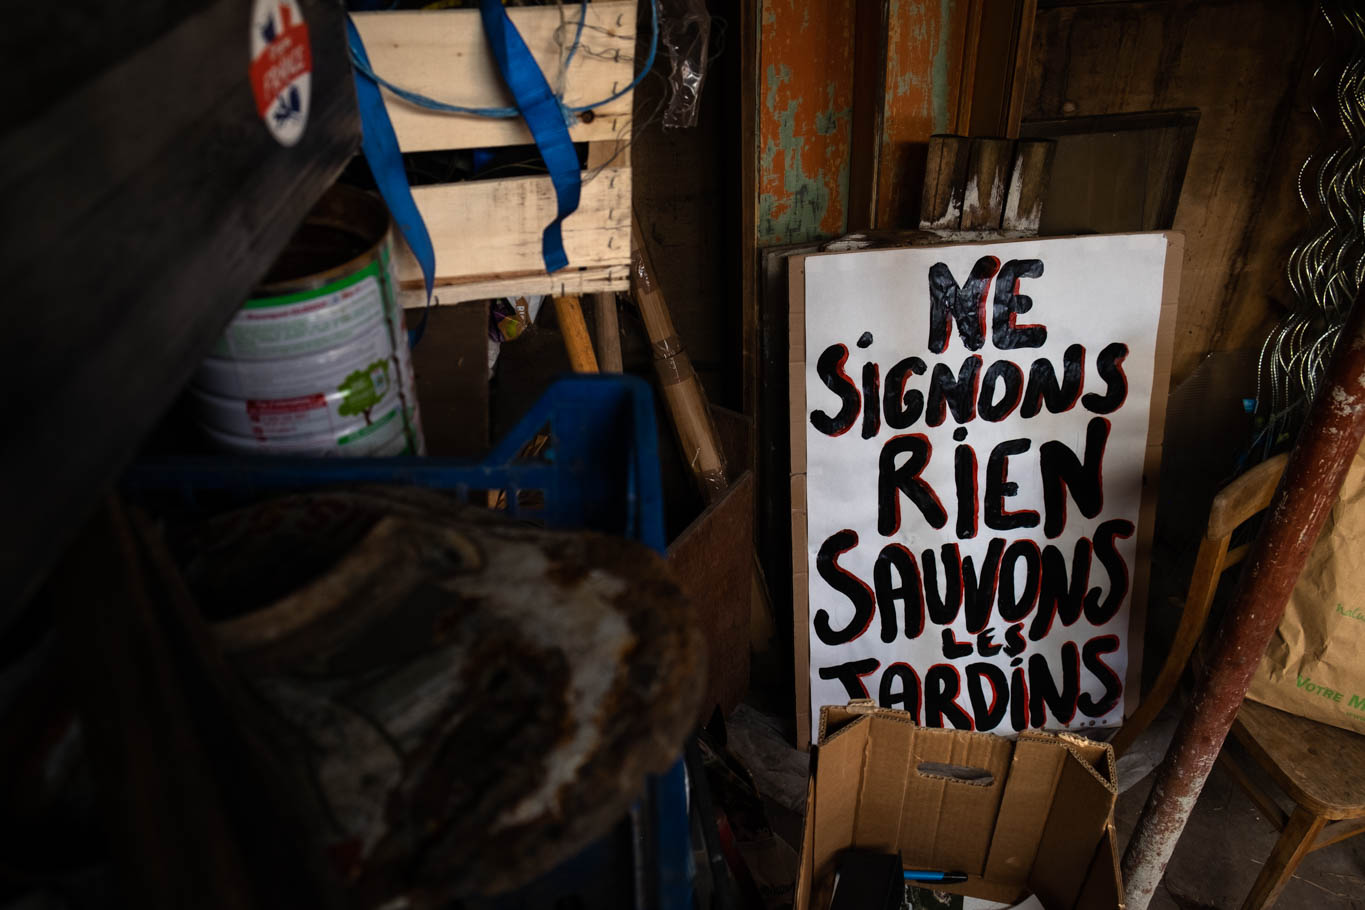 FRANCE
NE
SiGNONS
RiEN
SAUVONS
LES
JARDiNS...
VOTRE M